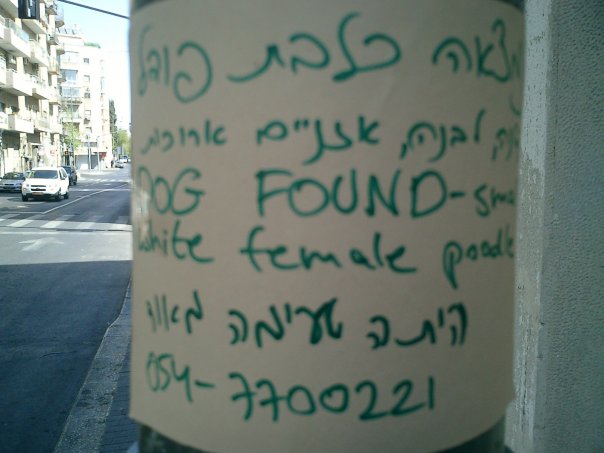 נמצאה כלבת פודל
קטנה, לבנה, אזניים ארוכות
DOG FOUND - small
white female poodle
היתה טעימה מאוד
054-7700221